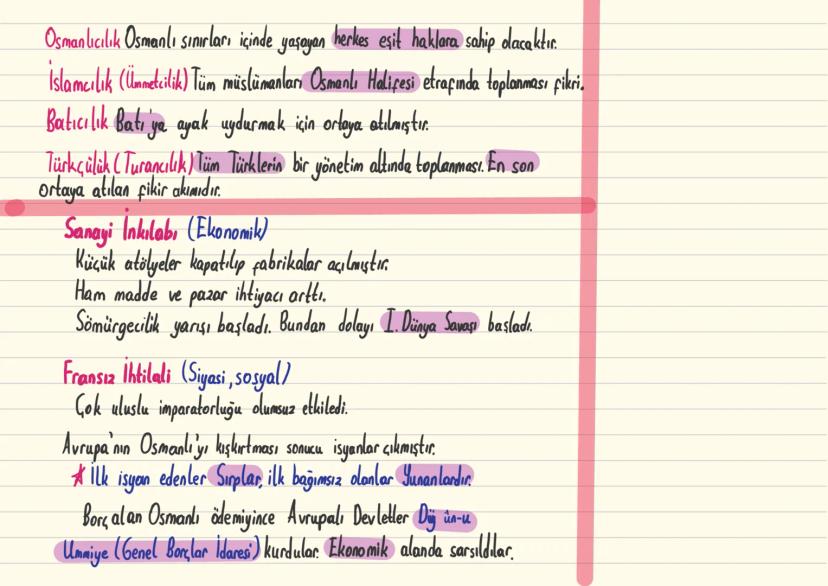 Osmanlıcılık Osmanlı sınırları içinde yaşayan herkes eşit haklara sahip olacaktır.
İslamcılık (Ümmetcilik) Tüm müslümanları Osmanlı Halifesi etrafında toplanması fikri.
Batıcılık Batı'ya ayak uydurmak için ortaya atılmıştır.
Türkçülük (Turancılık) Tüm Türklerin bir yönetim altında toplanması. En son
ortaya atılan fikir akımıdır.
Sanayi İnkılabı (Ekonomik)
Küçük atölyeler kapatılıp fabrikalar açılmıştır.
Ham madde ve pazar ihtiyacı arttı.
Sömürgecilik yarışı başladı. Bundan dolayı I. Dünya Savaşı başladı.
Fransız İhtilali (Siyasi, sosyal)
Çok uluslu imparatorluğu olumsuz etkiledi.
Avrupa'nın Osmanlı'yı kışkırtması sonucu isyanlar çıkmıştır.
İlk isyan edenler Sırplar, ilk bağımsız olanlar Yunanlardır.
Borç alan Osmanlı ödemeyince Avrupalı Devletler Düyün-u
Ummiye (Genel Borçlar İdaresi) kurdular. Ekonomik alanda sarsıldılar.